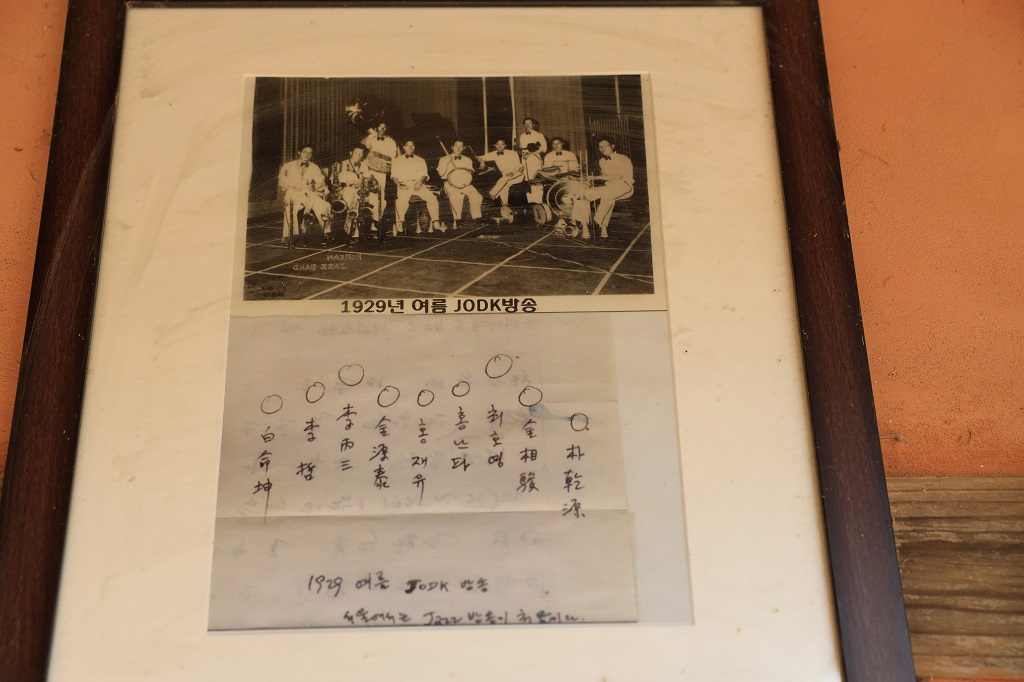 KOREAN
JAZZ BAND
1929년 여름 JODK방송
白命坤
李哲
李丙三
金源泰
홍재유
홍난파
최호영
金相駿
朴乾源
1929 여름 JODK 방송
서울에서는 Jazz 방송이 처음이다.